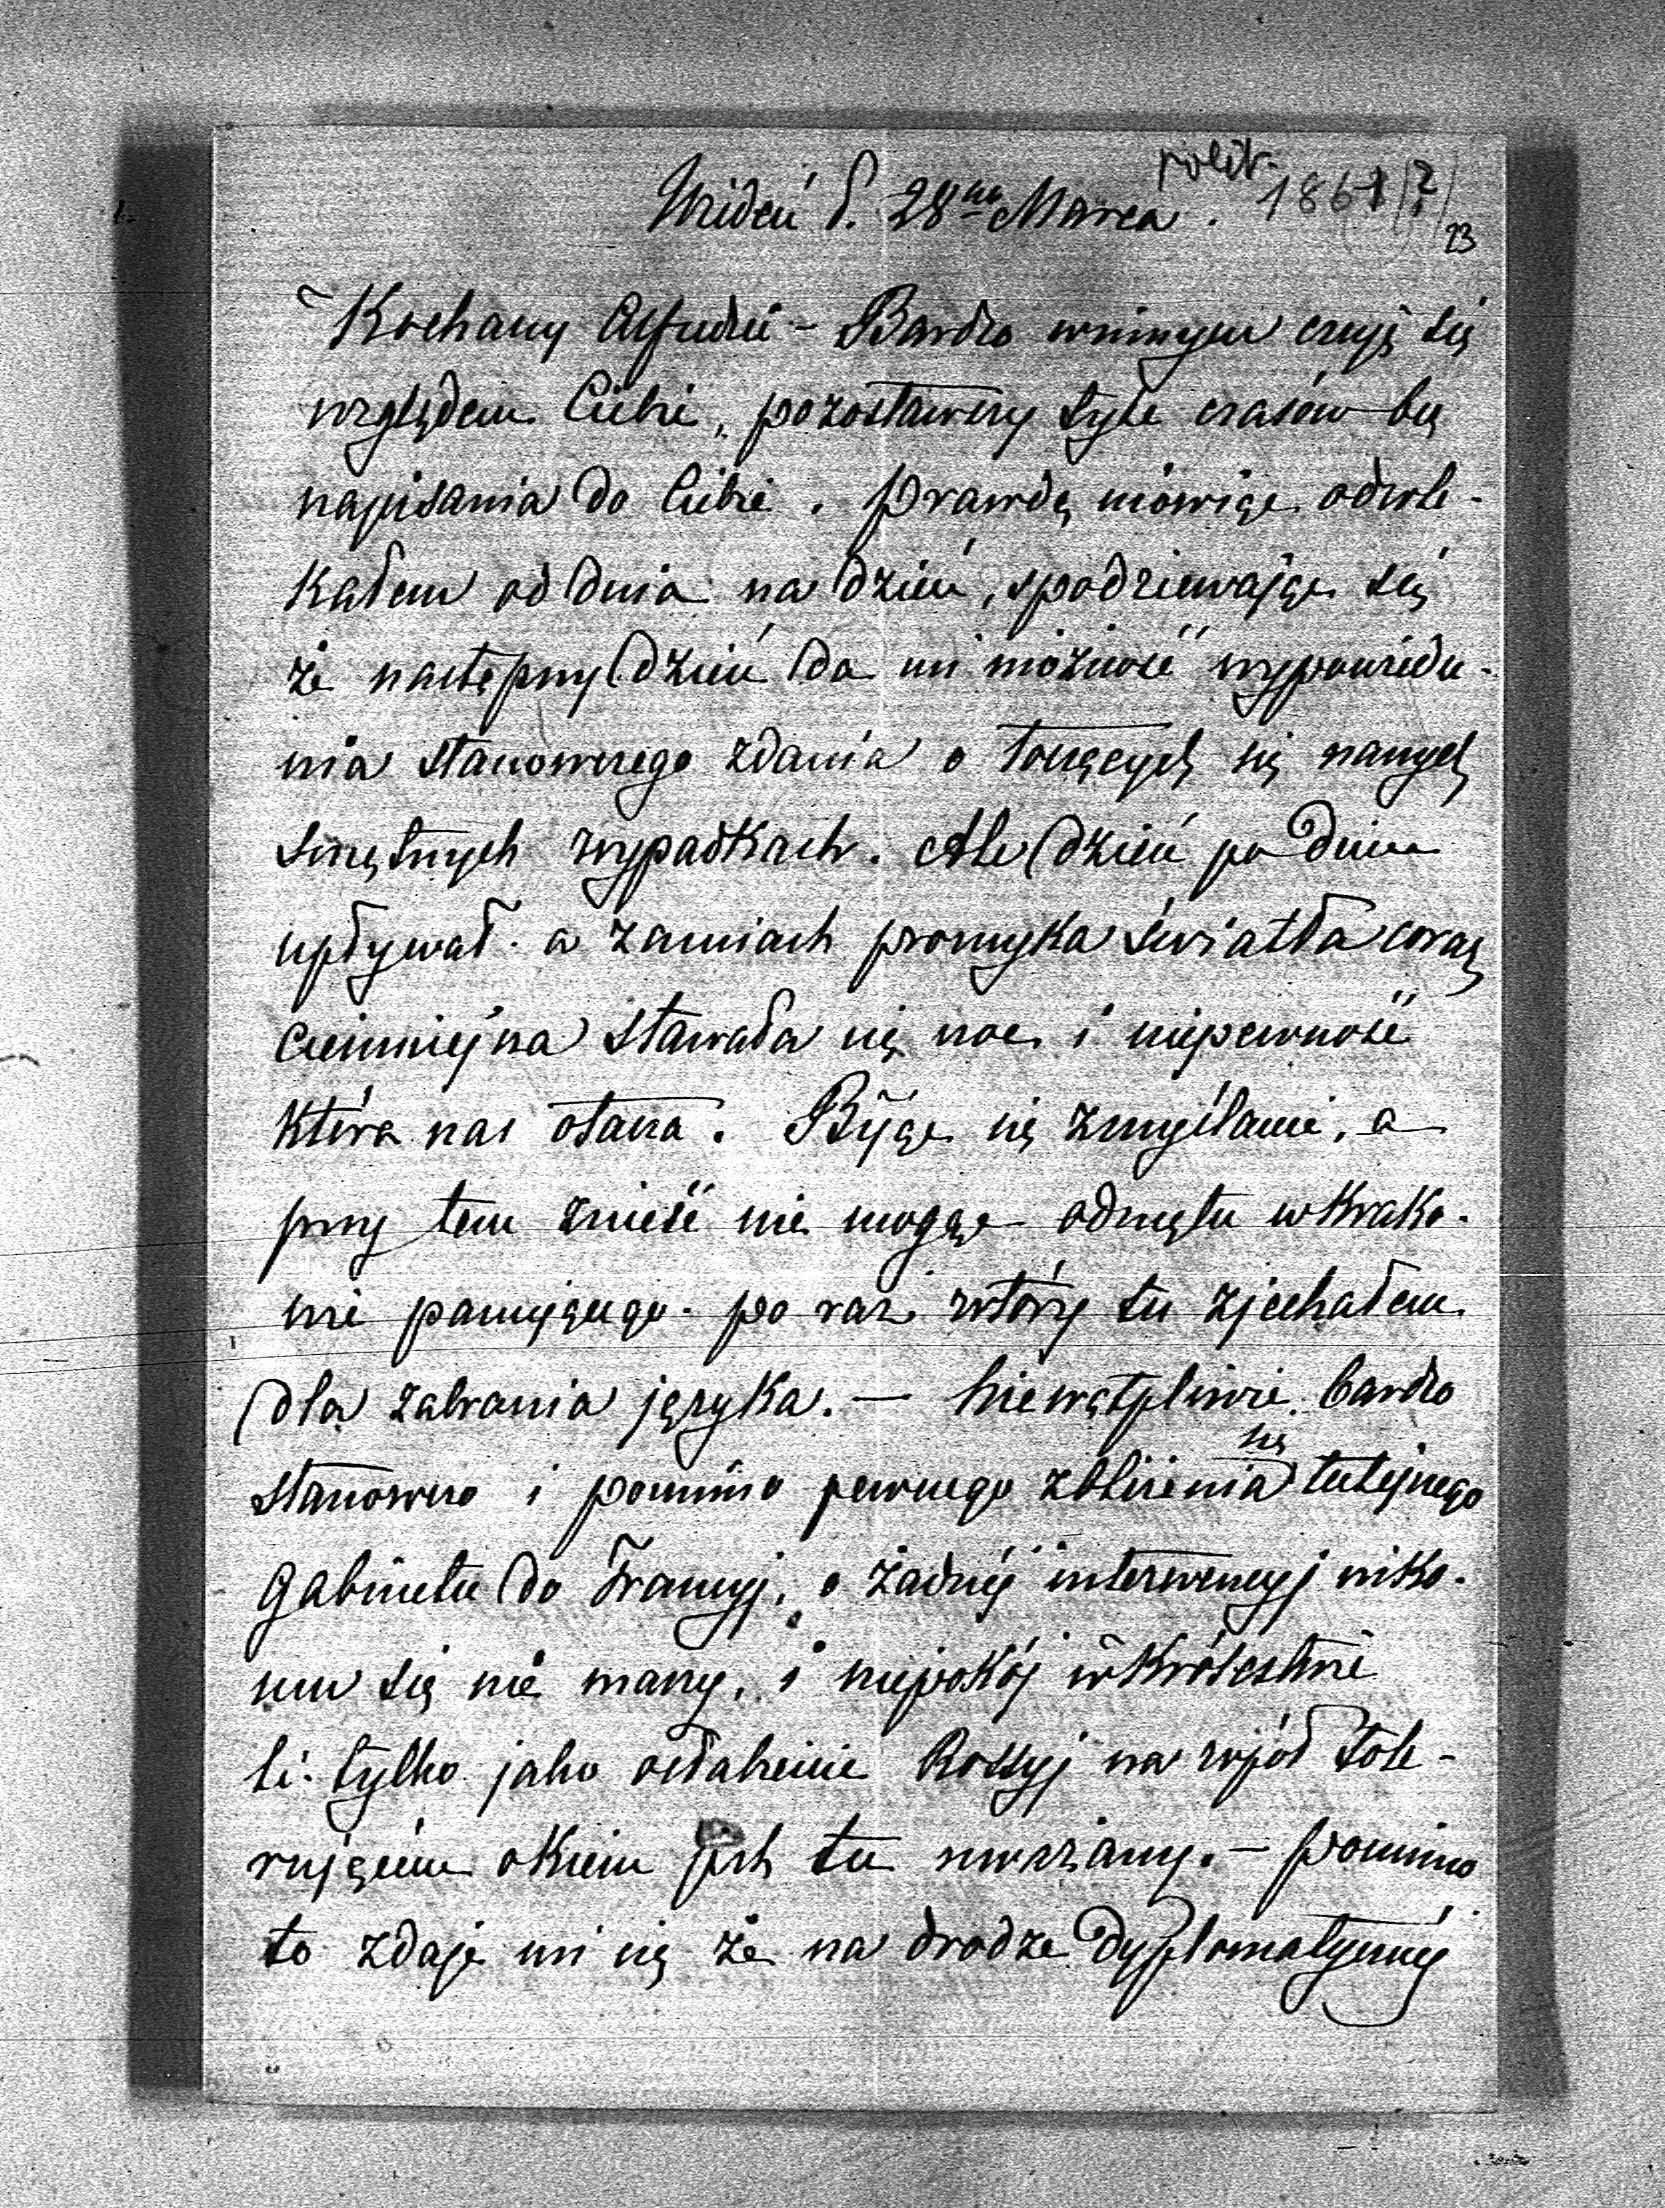 polit.
Wiedeń d. 28go Marca. 1861 (?)
23
Kochany Alfredzie - Bardzo winnym czuję się
względem Ciebie, pozostawszy tyle czasów bez
napisania do Ciebie. Prawdę mówiąc odwle-
kałem od dnia na dzień, spodziewając się
że następny dzień da mi możność wypowiedze-
nia stanowczego zdania o toczących się naszych
smętnych wypadkach. Ale dzień po dniu
upływał a zamiast promyka światła coraz
ciemniejsza stawała się noc i niepewność
która nas otacza. Bijąc się z myślami, a
przy tem znieść nie mogąc odmętu w Krako-
wie panującego po raz wtóry tu zjechałem
dla zabrania języka. — Niewątpliwie bardzo
stanowczo i pomimo pewnego zbliżenia się tutejszego
Gabinetu do Francyj, o żadnéj interwencyj niko-
mu się nie marzy, i niepokój w Królestwie
li tylko jako osłabienie Rossyj na wpół tole-
rującém okiem jest tu uważany. — Pomimo
to zdaje mi się że na drodze dyplomatycznéj